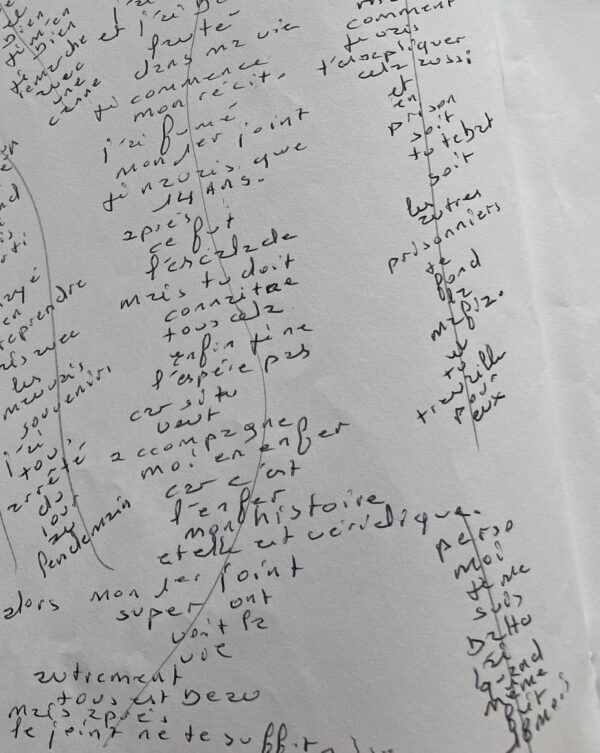 bien
bien
avec
une
canne
remarche et j'ai
fauté
dans ma vie
je commence
mon récit.
j'ai fumé
mon 1er joint
je n'avais que
14 ANS.
après
ce fut
l'escalade
mais tu doit
connaitre
tous cela
enfin je ne
l'espère pas
car si tu
veut
accompagne
moi en enfer
car c'est
l'enfer
mon histoire
et elle est véridique.
alors mon 1er joint
super
ont
voit la
vie
autrement
tous est beau
mais après
le joint ne te suffit
reprendre
avec
les
mauvais
souvenirs
j'ai
tous
arrêté
du
jour
au
lendemain
comment
je vais
t'expliquer
cela aussi
et
en
prison
soit
tu te bat
soit
les
autres
prisonniers
te
fond
la
mafia.
tu
travaille
pour
eux
perso
moi
je me
suis
battu
j'ai
quand
même
fait
18 mois